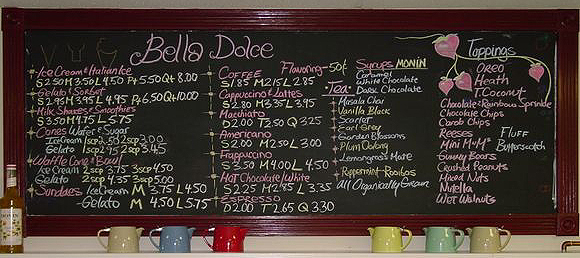 Bella Dolce
Ice Cream & Italian Ice
S 2.50 M 3.50 L 4.50 Pt 5.50 Qt 8.00
Gelato & Sorbet
S 2.95 M 3.95 L 4.95 Pt 6.50 Qt 10.00
Milk Shakes & Smoothies
S 3.50 M 4.75 L 5.75
Cones Wafer & Sugar
Ice Cream 1scp 2.50 2scp 3.00
Gelato 1scp 2.95 2scp 3.45
Waffle Cone & Bowl
Ice Cream 2scp 3.75 3scp 4.50
Gelato 2scp 4.35 3scp 5.00
Sundaes Ice Cream M 3.75 L 4.50
-Gelato M 4.50 L 5.75
Coffee Flavoring - 50¢
S 1.85 M 2.15 L 2.85
Cappuccino & Lattes
S 2.80 M 3.35 L 3.95
Macchiato
D 2.00 T 2.50 Q 3.25
Americano
S 2.00 M 2.50 L 3.00
Frappuccino
S 3.50 M 4.00 L 4.50
Hot Chocolate/White
S 2.25 M 2.85 L 3.35
Espresso
D 2.00 T 2.65 Q 3.30
Syrups MONIN
Caramel
White Chocolate
Dark Chocolate
-Tea-
Masala Chai
Vanilla Black
Scarlet
Earl Grey
Garden Blossoms
Plum Oolong
Lemongrass Mate
Peppermint Rooibos
All Organically Grown
Toppings
Oreo
Heath
T. Coconut
Chocolate & Rainbow Sprinkle
Chocolate Chips
Carob Chips
Reeses Fluff
Mini M&M's Butterscotch
Gummy Bears
Crushed Peanuts
Mixed Nuts
Nutella
Wet Walnuts